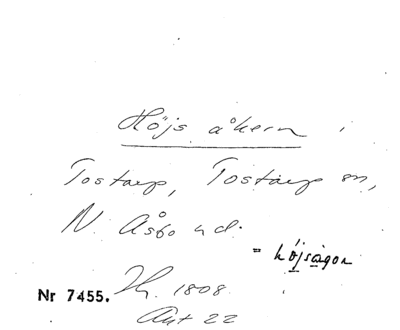 Höjs åkern
Tostarp, Tostarp sn,
N. Åsbo hd.
= höjsągon
Nr 7455. Jh. 1808
Akt 22